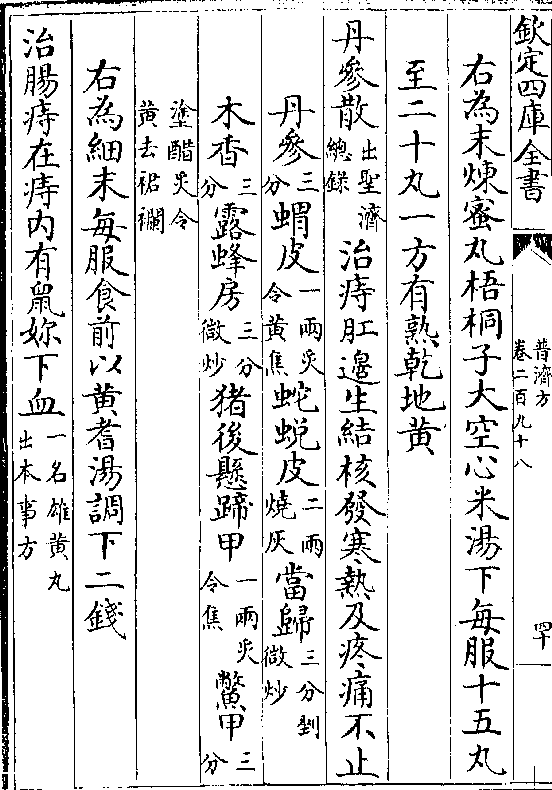 欽定四庫全書
普濟方
卷二百九十八
四十一
右為末煉蜜丸梧桐子大空心米湯下每服十五丸
至二十丸一方有熟乾地黄
丹參散出聖濟總錄治痔肛邉生結核發寒熱及疼痛不止
丹參三分蝟皮一兩炙令黄焦蛇蜕皮二兩燒灰當歸三分剉微炒
木香三分露蜂房三分微炒猪後懸蹄甲一兩炙令焦鱉甲三分
塗醋炙令黄去裙襴
右為細末每服食前以黄耆湯調下二錢
治腸痔在痔内有鼠妳下血一名雄黄丸出本事方